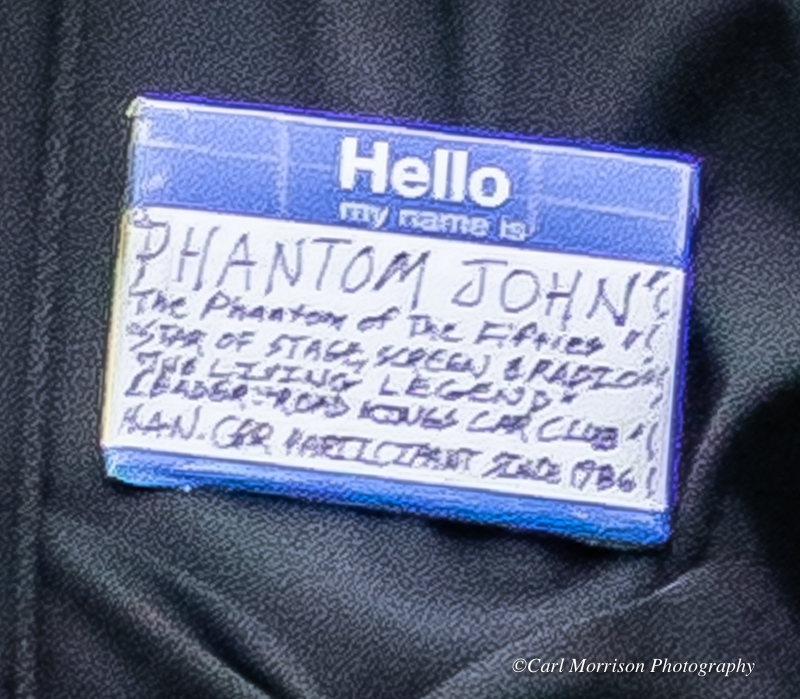 Hello
my name is
PHANTOM JOHN"
The Phantom of The Fifties "
"STAR OF STAGE, SCREEN & RADIO"
"THE LIVING LEGEND"
LEADER-ROAD KINGS CAR CLUB "
CAR PARTICIPANT SINCE 1986
©Carl Morrison Photography